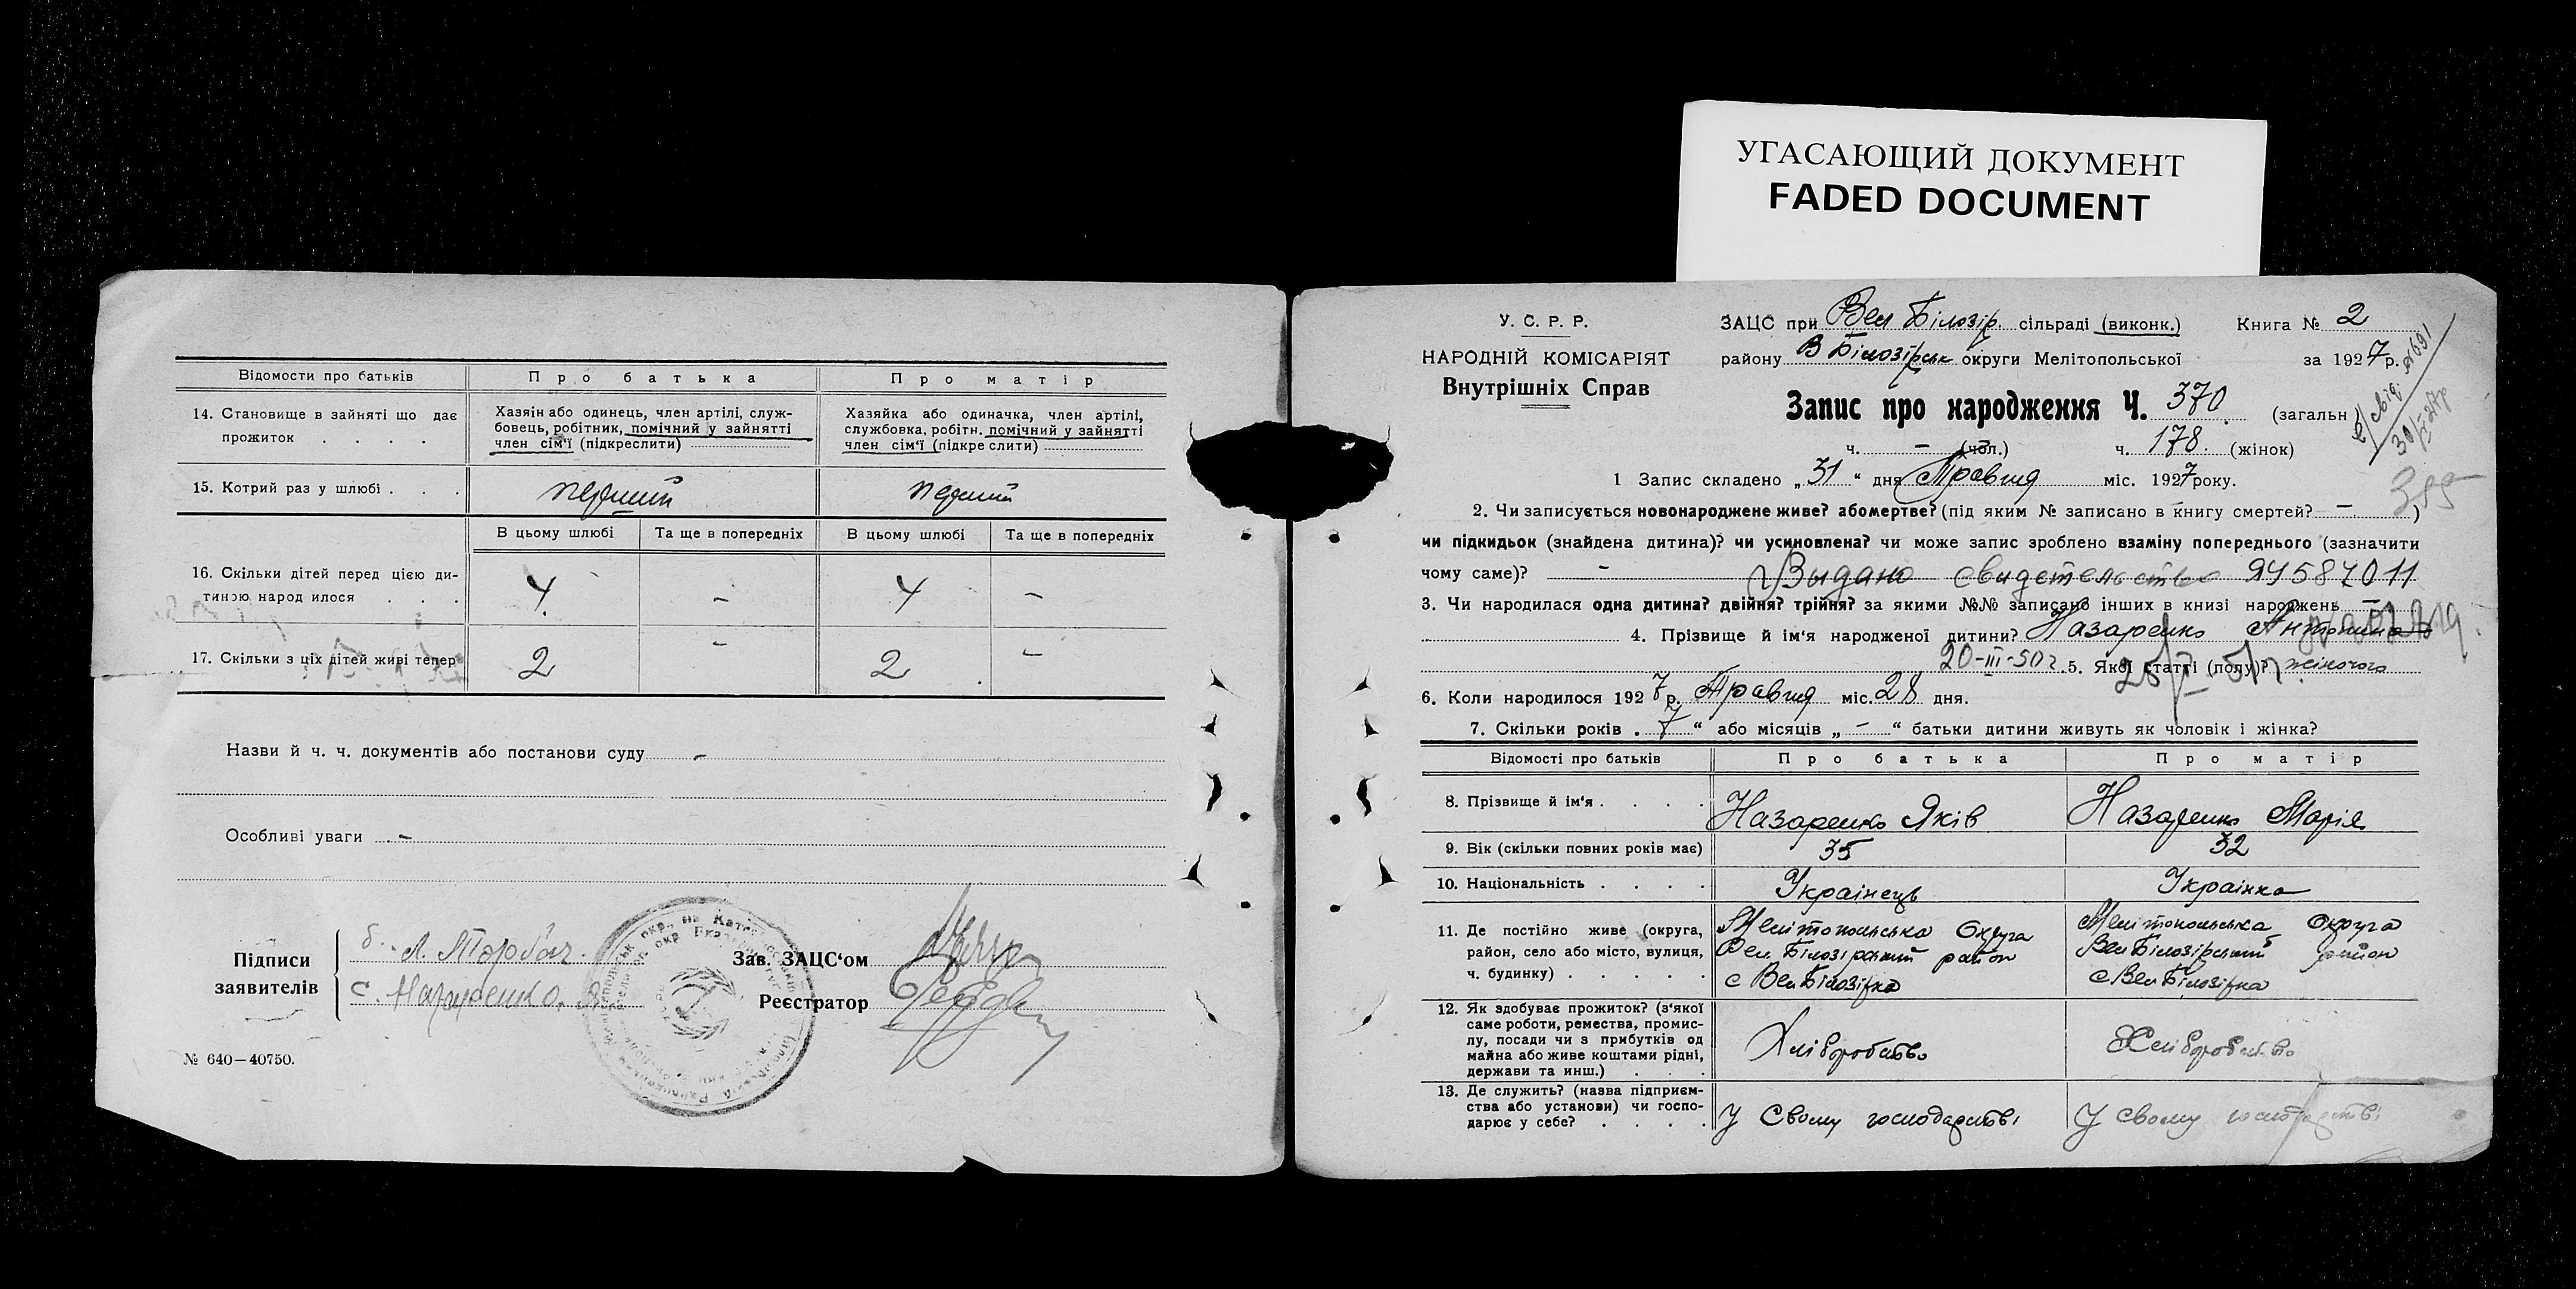 УГАСАЮЩИЙ ДОКУМЕНТ
FADED DOCUMENT
Відомости про батьків
Про батька
Про матір
14. Становище в зайняті що дає прожиток . . . .
Хазяін або одинець, член артілі, служ-
бовець, робітник, помічний у зайнятті
член сім'ї (підкреслити)
Хазяйка або одиначка, член артілі,
службовка, робітн. помічний у зайнятті
член сім'ї (підкре слити)
15. Котрий раз у шлюбі . . .
перший
перший
В цьому шлюбі
Та ще в попередніх
В цьому шлюбі
Та ще в попередніх
16. Скільки дітей перед цією ди-
тиною народ илося . . .
4 - 4 -
17. Скільки з ціх дітей живі тепер
2 - 2 -
Назви й ч. ч. документів або постанови суду -
Особливі уваги -
Підписи
заявителів
с. Назаренко. Я
Зав. ЗАЦС'ом
Реєстратор
№ 640—40750.
У. С. Р. Р.
НАРОДНІЙ КОМІСАРІЯТ
Внутрішніх Справ
ЗАЦС при Вел Білозір. сільраді (виконк.)
Книга № 2
району В Білозірськ округи Мелітопольської
за 1927 р.
Запис про народження Ч. 370 (загальн
ч. - (чол.) ч. 178. (жінок)
1 Запис складено „31“ дня Травня міс. 1927 року.
2. Чи записується новонароджене живе? або мертве? (під яким № записано в книгу смертей? - )
чи підкидьок (знайдена дитина)? чи усиновлена? чи може запис зроблено взаміну попереднього (зазначити
чому саме)? - Выдано свидетельство ЯЧ587011
3. Чи народилася одна дитина? двійня? трійня? за якими №№ записано інших в книзі народжень -
4. Прізвище й ім'я народженої дитини? Назаренко Антонина
20-III-50 г. 5. Якої статті (полу)? жіночого
6. Коли народилося 1927 р. Травня міс. 28 дня.
7. Скільки років „7“ або місяців „ - “ батьки дитини живуть як чоловік і жінка?
Відомості про батьків
Про батька
Про матір
8. Прізвище й ім'я . . . .
Назаренко Яків
Назаренко Марія
9. Вік (скільки повних років має)
35
32
10. Національність . . . .
Українець
Українка
11. Де постійно живе (округа,
район, село або місто, вулиця,
ч. будинку) . . . . .
Мелітопольська Округа
Вел Білозірський район
с Вел Білозірка
Мелітопольська Округа
Вел Білозірський район
с Вел Білозірка
12. Як здобуває прожиток? (з'якої
саме роботи, ремества, промис-
лу, посади чи з прибутків од
майна або живе коштами рідні,
держави та инш.) . . .
Хліборобство
Хліборобство
13. Де служить? (назва підприєм-
ства або установи) чи госпо-
дарює у себе? . . . .
У Свому господарстві
У свому господарстві